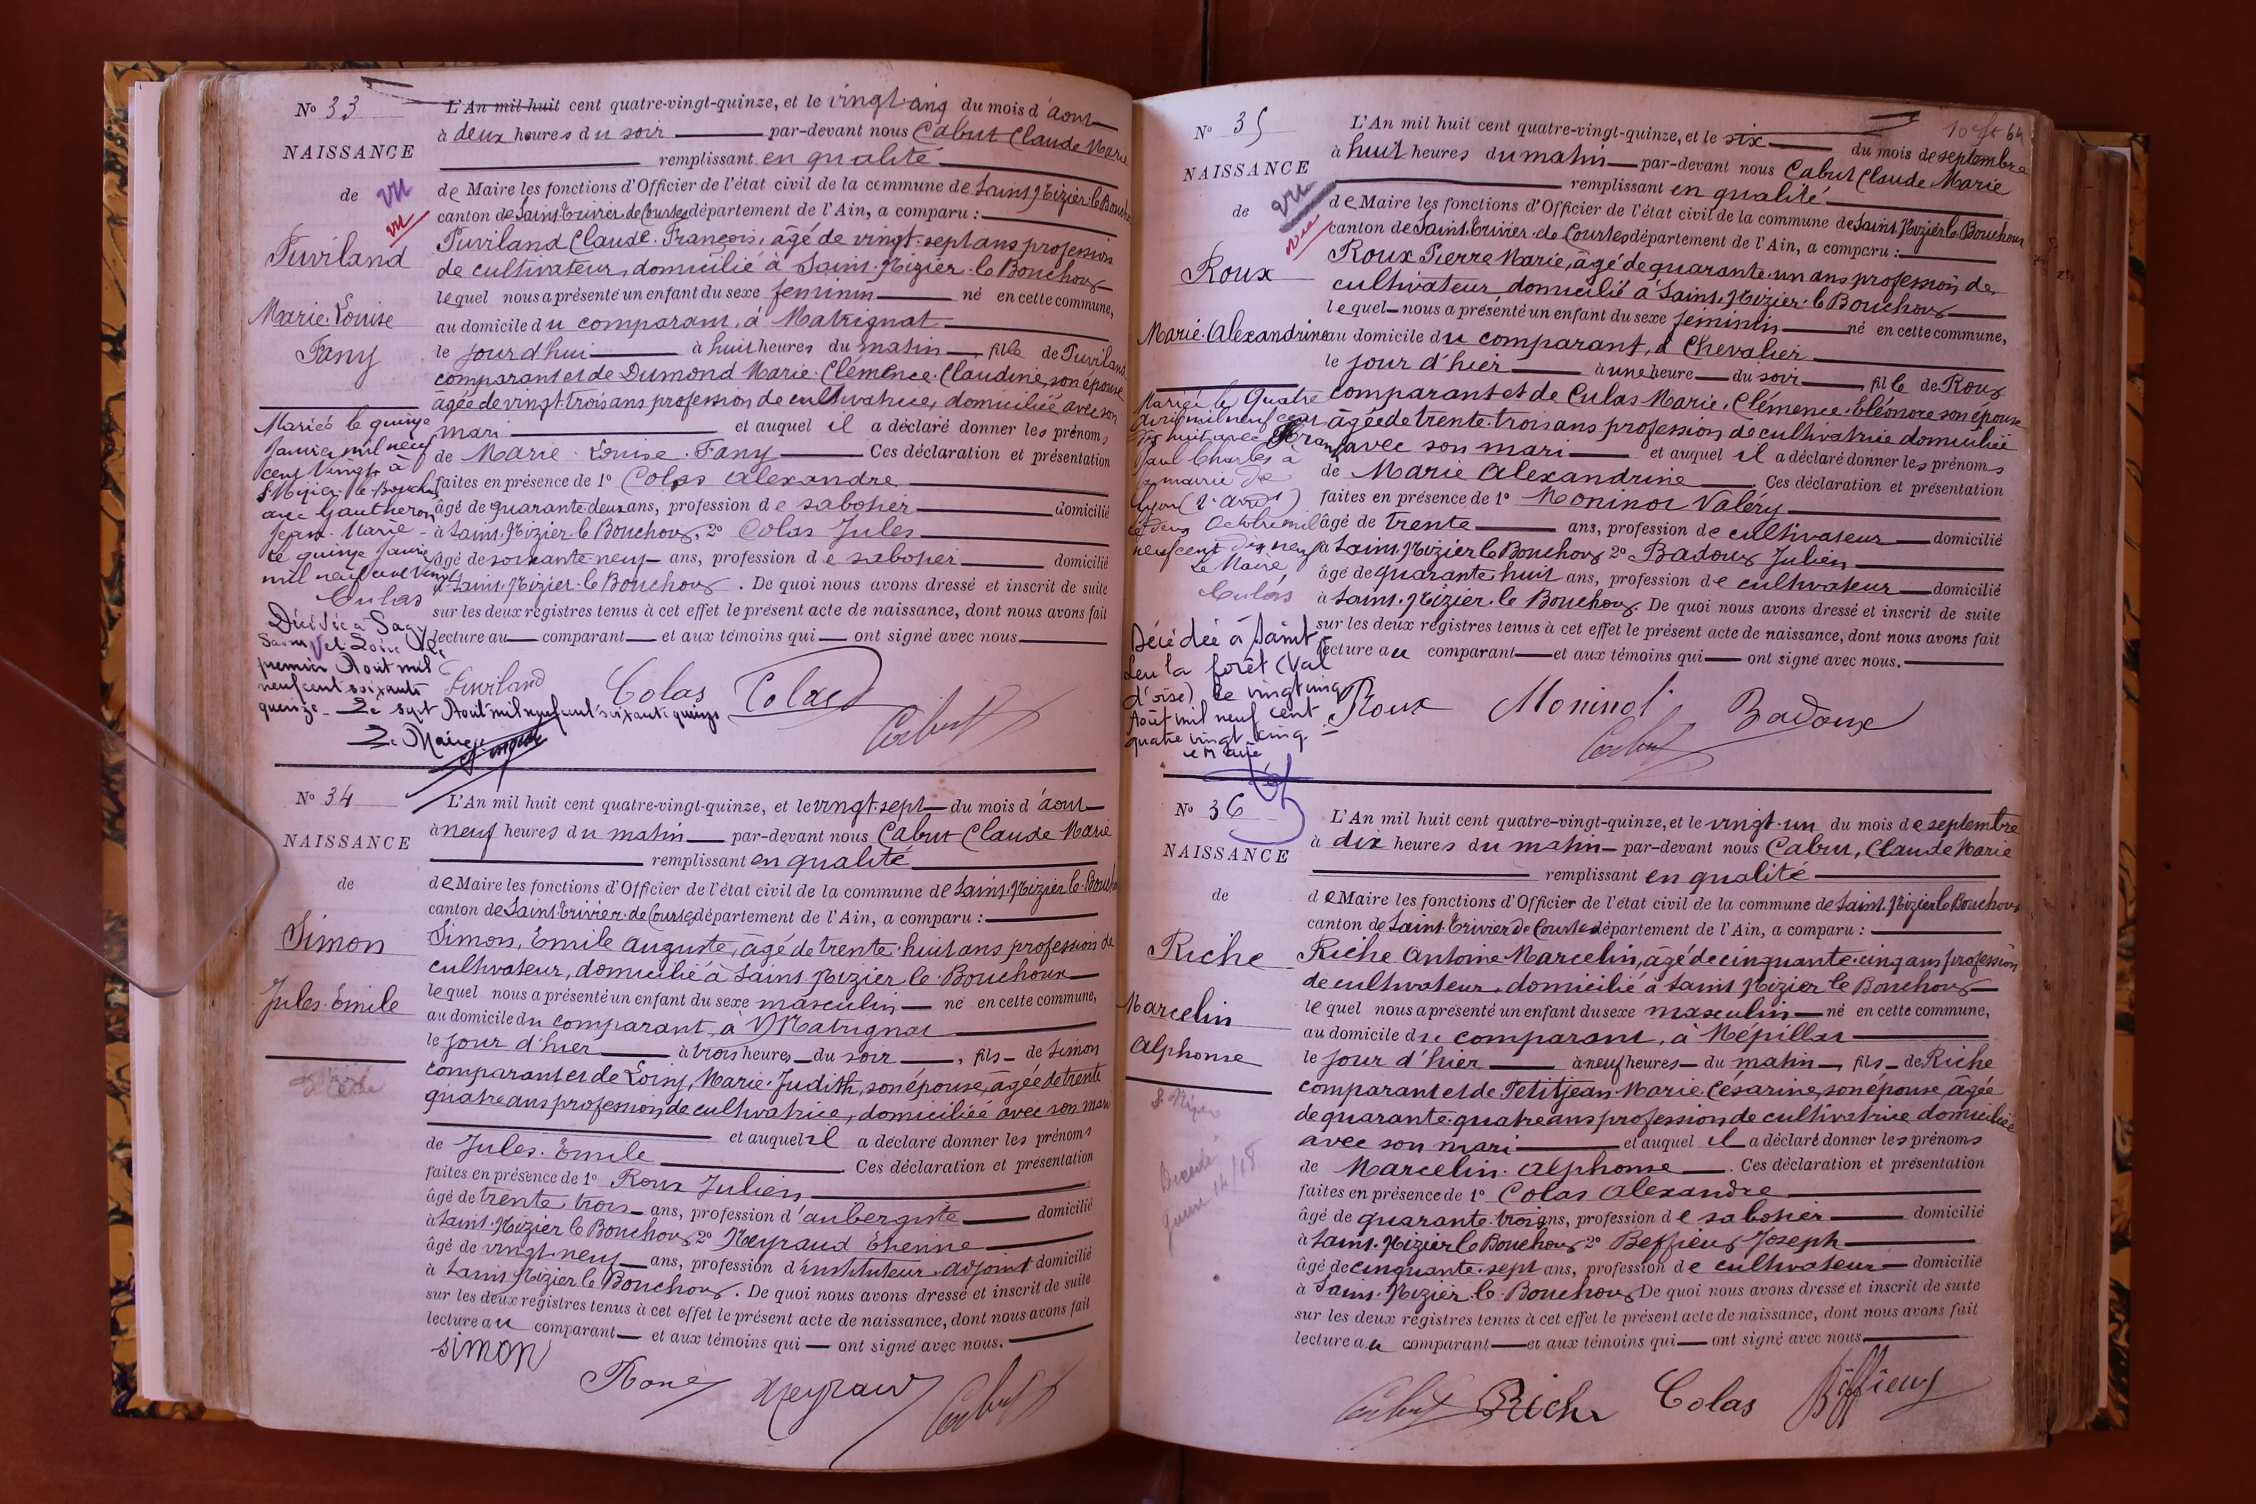 No 33
NAISSANCE
de
vu
vu
Puviland
Marie. Louise
Fany
Mariés le quinze
Janvier mil neuf
cent vingt à
St Nizier le Bouchoux
avec Gautheron
Jean. Marie
Le quinze Janvier
mil neuf cent vingt
Culas
Décédée à Sagy
Saône et Loire le
premier Août mil
neuf cent soixante
quinze. Le sept Août mil neuf cent soixante quinze
Le Maire
L'An mil huit cent quatre-vingt-quinze, et le vingt cinq du mois d'aout
à deux heures du soir par-devant nous Cabut Claude Marie
remplissant en qualité
de Maire les fonctions d'Officier de l'état civil de la commune de Saint. Nizier. le Bouchoux
canton de Saint Trivier. de Courtes département de l'Ain, a comparu :
Puviland Claude. François, âgé de vingt. sept ans profession
de cultivateur, domicilié à Saint. Nizier. le Bouchoux
lequel nous a présenté un enfant du sexe feminin né en cette commune,
au domicile du comparant, à Matrignat
le jour d'hui à huit heures du matin, fille de Puviland
comparant et de Dumond Marie. Clémence. Claudine, son épouse
âgée de vingt-trois ans profession de cultivatrice, domiciliée avec son
mari et auquel il a déclaré donner les prénoms
de Marie. Louise. Fany Ces déclaration et présentation
faites en présence de 1° Colas Alexandre
âgé de quarante-deux ans, profession de sabotier domicilié
à Saint. Nizier. le Bouchoux, 2° Colas Jules
âgé de soixante-neuf ans, profession de sabotier domicilié
à Saint. Nizier. le Bouchoux. De quoi nous avons dressé et inscrit de suite
sur les deux registres tenus à cet effet le présent acte de naissance, dont nous avons fait
lecture au comparant et aux témoins qui ont signé avec nous
Puviland Colas Colas
Cabut
No 34
NAISSANCE
de
Simon
Jules. Emile
L'An mil huit cent quatre-vingt-quinze, et le vingt. sept du mois d'aout
à neuf heures du matin par-devant nous Cabut Claude Marie
remplissant en qualité
de Maire les fonctions d'Officier de l'état civil de la commune de Saint. Nizier le. Bouchoux
canton de Saint Trivier. de Courtes département de l'Ain, a comparu :
Simon, Emile Auguste, âgé de trente. huit ans profession de
cultivateur, domicilié à Saint Nizier le Bouchoux
lequel nous a présenté un enfant du sexe masculin né en cette commune,
au domicile du comparant, à Matrignat
le jour d'hier à trois heures du soir, fils de Simon
comparant et de Loisy, Marie. Judith, son épouse, âgée de trente
quatre ans profession de cultivatrice, domiciliée avec son mari
et auquel il a déclaré donner les prénoms
de Jules. Emile Ces déclaration et présentation
faites en présence de 1° Roux Julien
âgé de trente trois ans, profession d'aubergiste domicilié
à Saint. Nizier le Bouchoux 2° Neyraud Etienne
âgé de vingt. neuf ans, profession d'instituteur. adjoint domicilié
à Saint Nizier le Bouchoux. De quoi nous avons dressé et inscrit de suite
sur les deux registres tenus à cet effet le présent acte de naissance, dont nous avons fait
lecture au comparant et aux témoins qui ont signé avec nous.
simon
Roux Neyraud Cabut
64
No 35
NAISSANCE
de
vu
vu
Roux
Marie. Alexandrine
Mariée le Quatre
Avril mil neuf cent
dix huit avec
Paul Charles à
la mairie de
Lyon (2e arrdt)
Le deux Octobre mil
neuf cent dix neuf
Le Maire
Culas
Décédée à Saint
Leu la forêt (Val
d'oise) le vingt cinq
Août mil neuf cent
quatre vingt cinq
Le Maire
L'An mil huit cent quatre-vingt-quinze, et le six du mois de septembre
à huit heures du matin par-devant nous Cabut Claude Marie
remplissant en qualité
de Maire les fonctions d'Officier de l'état civil de la commune de Saint. Nizier le Bouchoux
canton de Saint. Trivier. de Courtes département de l'Ain, a comparu :
Roux Pierre Marie, âgé de quarante. un ans profession de
cultivateur domicilié à Saint. Nizier. le Bouchoux
lequel nous a présenté un enfant du sexe féminin né en cette commune,
au domicile du comparant, à Chevalier
le jour d'hier à une heure du soir, fille de Roux
comparant et de Culas Marie. Clémence. Eléonore son épouse
âgée de trente-trois ans profession de cultivatrice domiciliée
avec son mari et auquel il a déclaré donner les prénoms
de Marie Alexandrine. Ces déclaration et présentation
faites en présence de 1° Moninot Valéry
âgé de trente ans, profession de cultivateur domicilié
à Saint. Nizier le Bouchoux 2° Badoux Julien
âgé de quarante huit ans, profession de cultivateur domicilié
à Saint. Nizier. le Bouchoux. De quoi nous avons dressé et inscrit de suite
sur les deux registres tenus à cet effet le présent acte de naissance, dont nous avons fait
lecture au comparant et aux témoins qui ont signé avec nous.
Roux Moninot Badoux
Cabut
No 36
NAISSANCE
de
Riche
Marcelin
Alphonse
St Nizier
Décédé
guerre 14/18
L'An mil huit cent quatre-vingt-quinze, et le vingt-un du mois de septembre
à dix heures du matin par-devant nous Cabut, Claude Marie
remplissant en qualité
de Maire les fonctions d'Officier de l'état civil de la commune de Saint. Nizier le Bouchoux
canton de Saint. Trivier de Courtes département de l'Ain, a comparu :
Riche Antoine Marcelin, âgé de cinquante. cinq ans profession
de cultivateur, domicilié à Saint Nizier le Bouchoux
lequel nous a présenté un enfant du sexe masculin né en cette commune,
au domicile du comparant, à Népillat
le jour d'hier à neuf heures du matin, fils de Riche
comparant et de Petitjean Marie Césarine, son épouse, âgée
de quarante quatre ans profession de cultivatrice domiciliée
avec son mari et auquel il a déclaré donner les prénoms
de Marcelin. Alphonse. Ces déclaration et présentation
faites en présence de 1° Colas Alexandre
âgé de quarante. trois ans, profession de sabotier domicilié
à Saint. Nizier le Bouchoux 2° Beffieux Joseph
âgé de cinquante. sept ans, profession de cultivateur domicilié
à Saint. Nizier. le. Bouchoux De quoi nous avons dressé et inscrit de suite
sur les deux registres tenus à cet effet le présent acte de naissance, dont nous avons fait
lecture au comparant et aux témoins qui ont signé avec nous
Cabut Riche Colas Beffieux